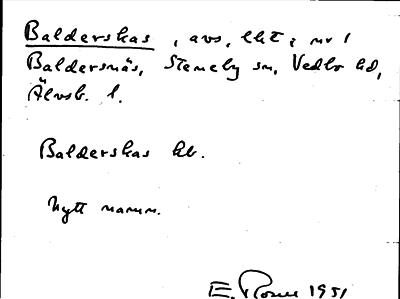 Balderskas, avs, lht, nr 1
Baldersnäs, Steneby sn, Vedbo hd,
Älvsb. l.
Balderskas hb.
Nytt namn.
E. Rosell 1951